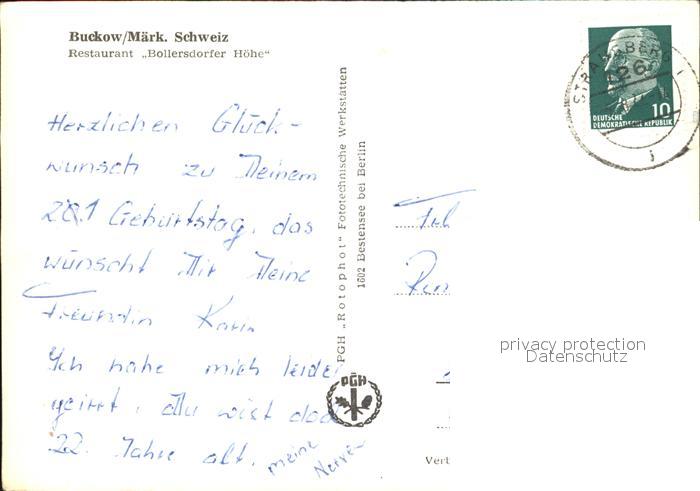 Buckow/Märk. Schweiz
Restaurant „Bollersdorfer Höhe“
Herzlichen Glück-
wunsch zu Deinem
Geburtstag, das
wünscht Dir Deine
Freundin Karin
Ich habe mich leider
geirrt, du wist doch
22. Jahre alt. meine
Nerven
PGH „Rotophot“ Fototechnische Werkstätten
1602 Bestensee bei Berlin
PGH
STRAUSBERG 1
26
DEUTSCHE
DEMOKRATISCHE REPUBLIK
10
privacy protection
Datenschutz
Vert